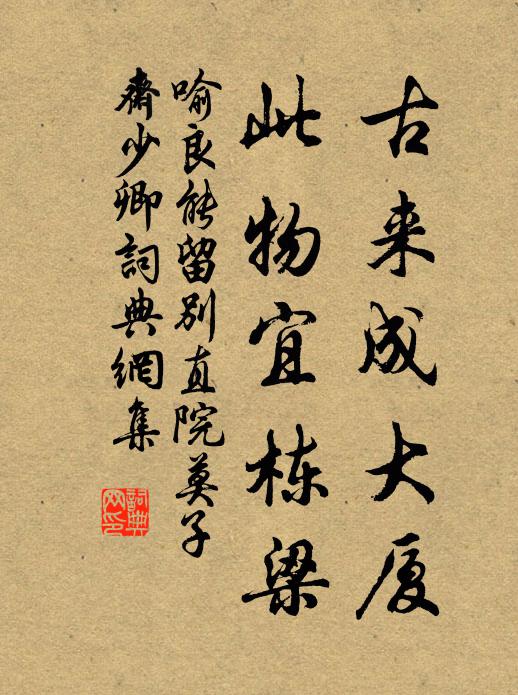 古来成大厦
此物宜栋梁
喻良能留别直院莫子
齋少卿詞典網集
詞典网印